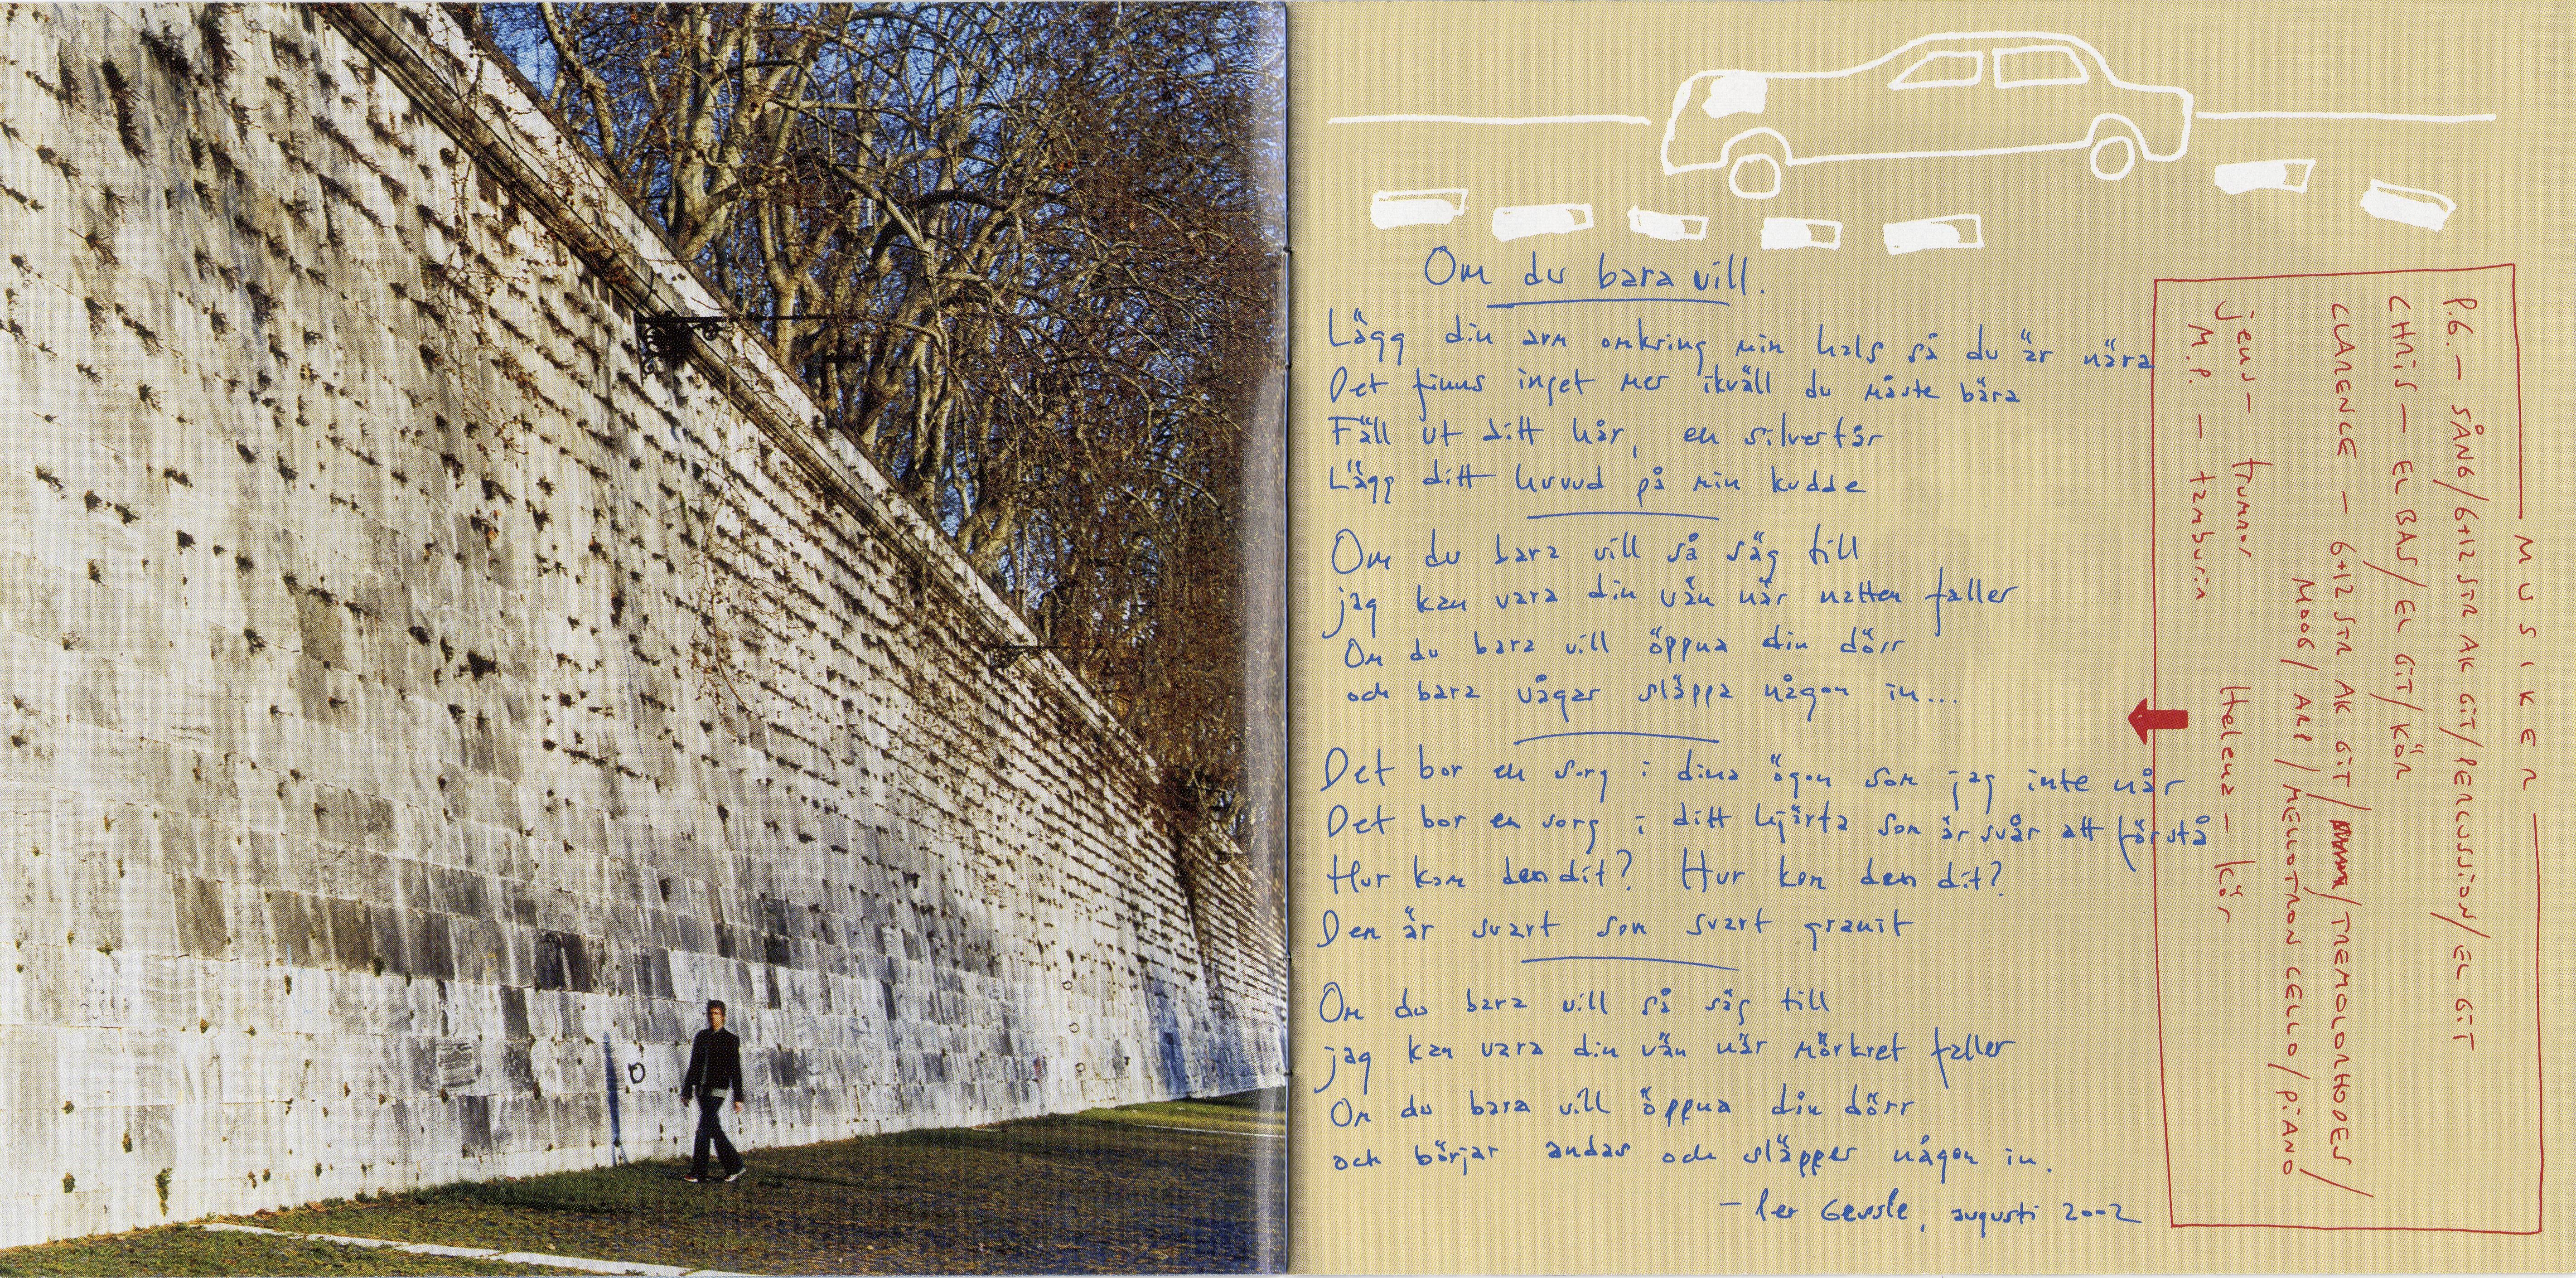 Om du bara vill.
Lägg din arm omkring min hals så du är nära
Det finns inget mer ikväll du måste bära
Fäll ut ditt hår, en silvertår
Lägg ditt huvud på min kudde
Om du bara vill så säg till
jag kan vara din vän när natten faller
Om du bara vill öppna din dörr
och bara vågar släppa någon in...
Det bor en sorg i dina ögon som jag inte når
Det bor en sorg i ditt hjärta som är svår att förstå
Hur kom den dit? Hur kom den dit?
Den är svart som svart granit
Om du bara vill så säg till
jag kan vara din vän när mörkret faller
Om du bara vill öppna din dörr
och börjar andas och släpper någon in.
– Per Gessle, augusti 2002
MUSIKER
P.G. – SÅNG/6+12 STR AK GIT/PERCUSSION/EL GIT
CHRIS – EL BAS/EL GIT/KÖR
CLARENCE – 6+12 STR AK GIT/TREMOLORHODES/
MOOG/ARP/MELLOTRON CELLO/PIANO
jens – trummor Helena – kör
M.P. – tamburin